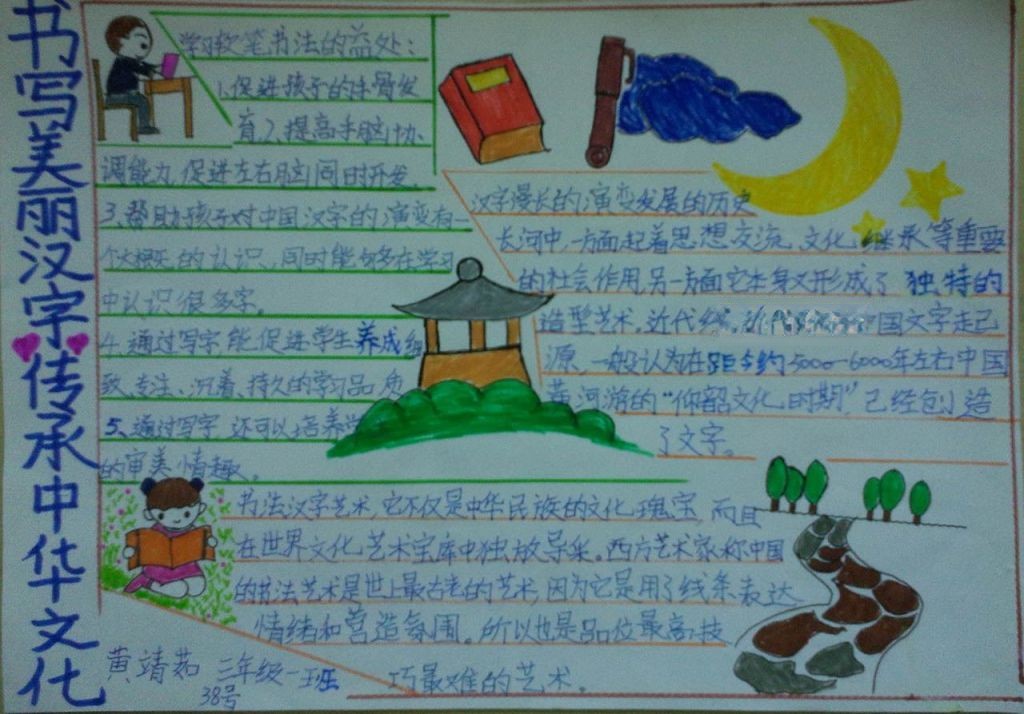 书写美丽汉字传承中华文化
学习软笔书法的益处：
1.促进孩子的手骨发
育2、提高手脑协
调能力,促进左右脑同时开发、
3、帮助孩子对中国汉字的演变有一
个大概的认识、同时能够多在学习
中认识很多字。
4、通过写字,能促进学生养成细
致、专注、沉着、持久的学习品质
5、通过写字,还可以培养学
的审美情趣。
汉字漫长的演变发展的历史
长河中,一方面起着思想交流、文化继承等重要
的社会作用,另一方面它本身又形成了独特的
造型艺术,近代
国文字走己
源,一般认为在距今约5000-6000年左右中国
黄河游的“仰韶文化时期”已经包小造
了文字。
书法汉字艺术,它不仅是中华民族的文化瑰宝,而且
在世界文化艺术宝库中独放异采。西方艺术家称中国
的书法艺术是世上最古老的艺术,因为它是用了线条表达
情绪和营造氛围。所以也是品位最高技
巧最难的艺术。
黄靖茹 三年级一班
38号